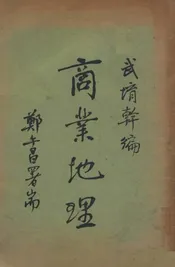 武堉幹編
商業地理
鄭午昌署耑